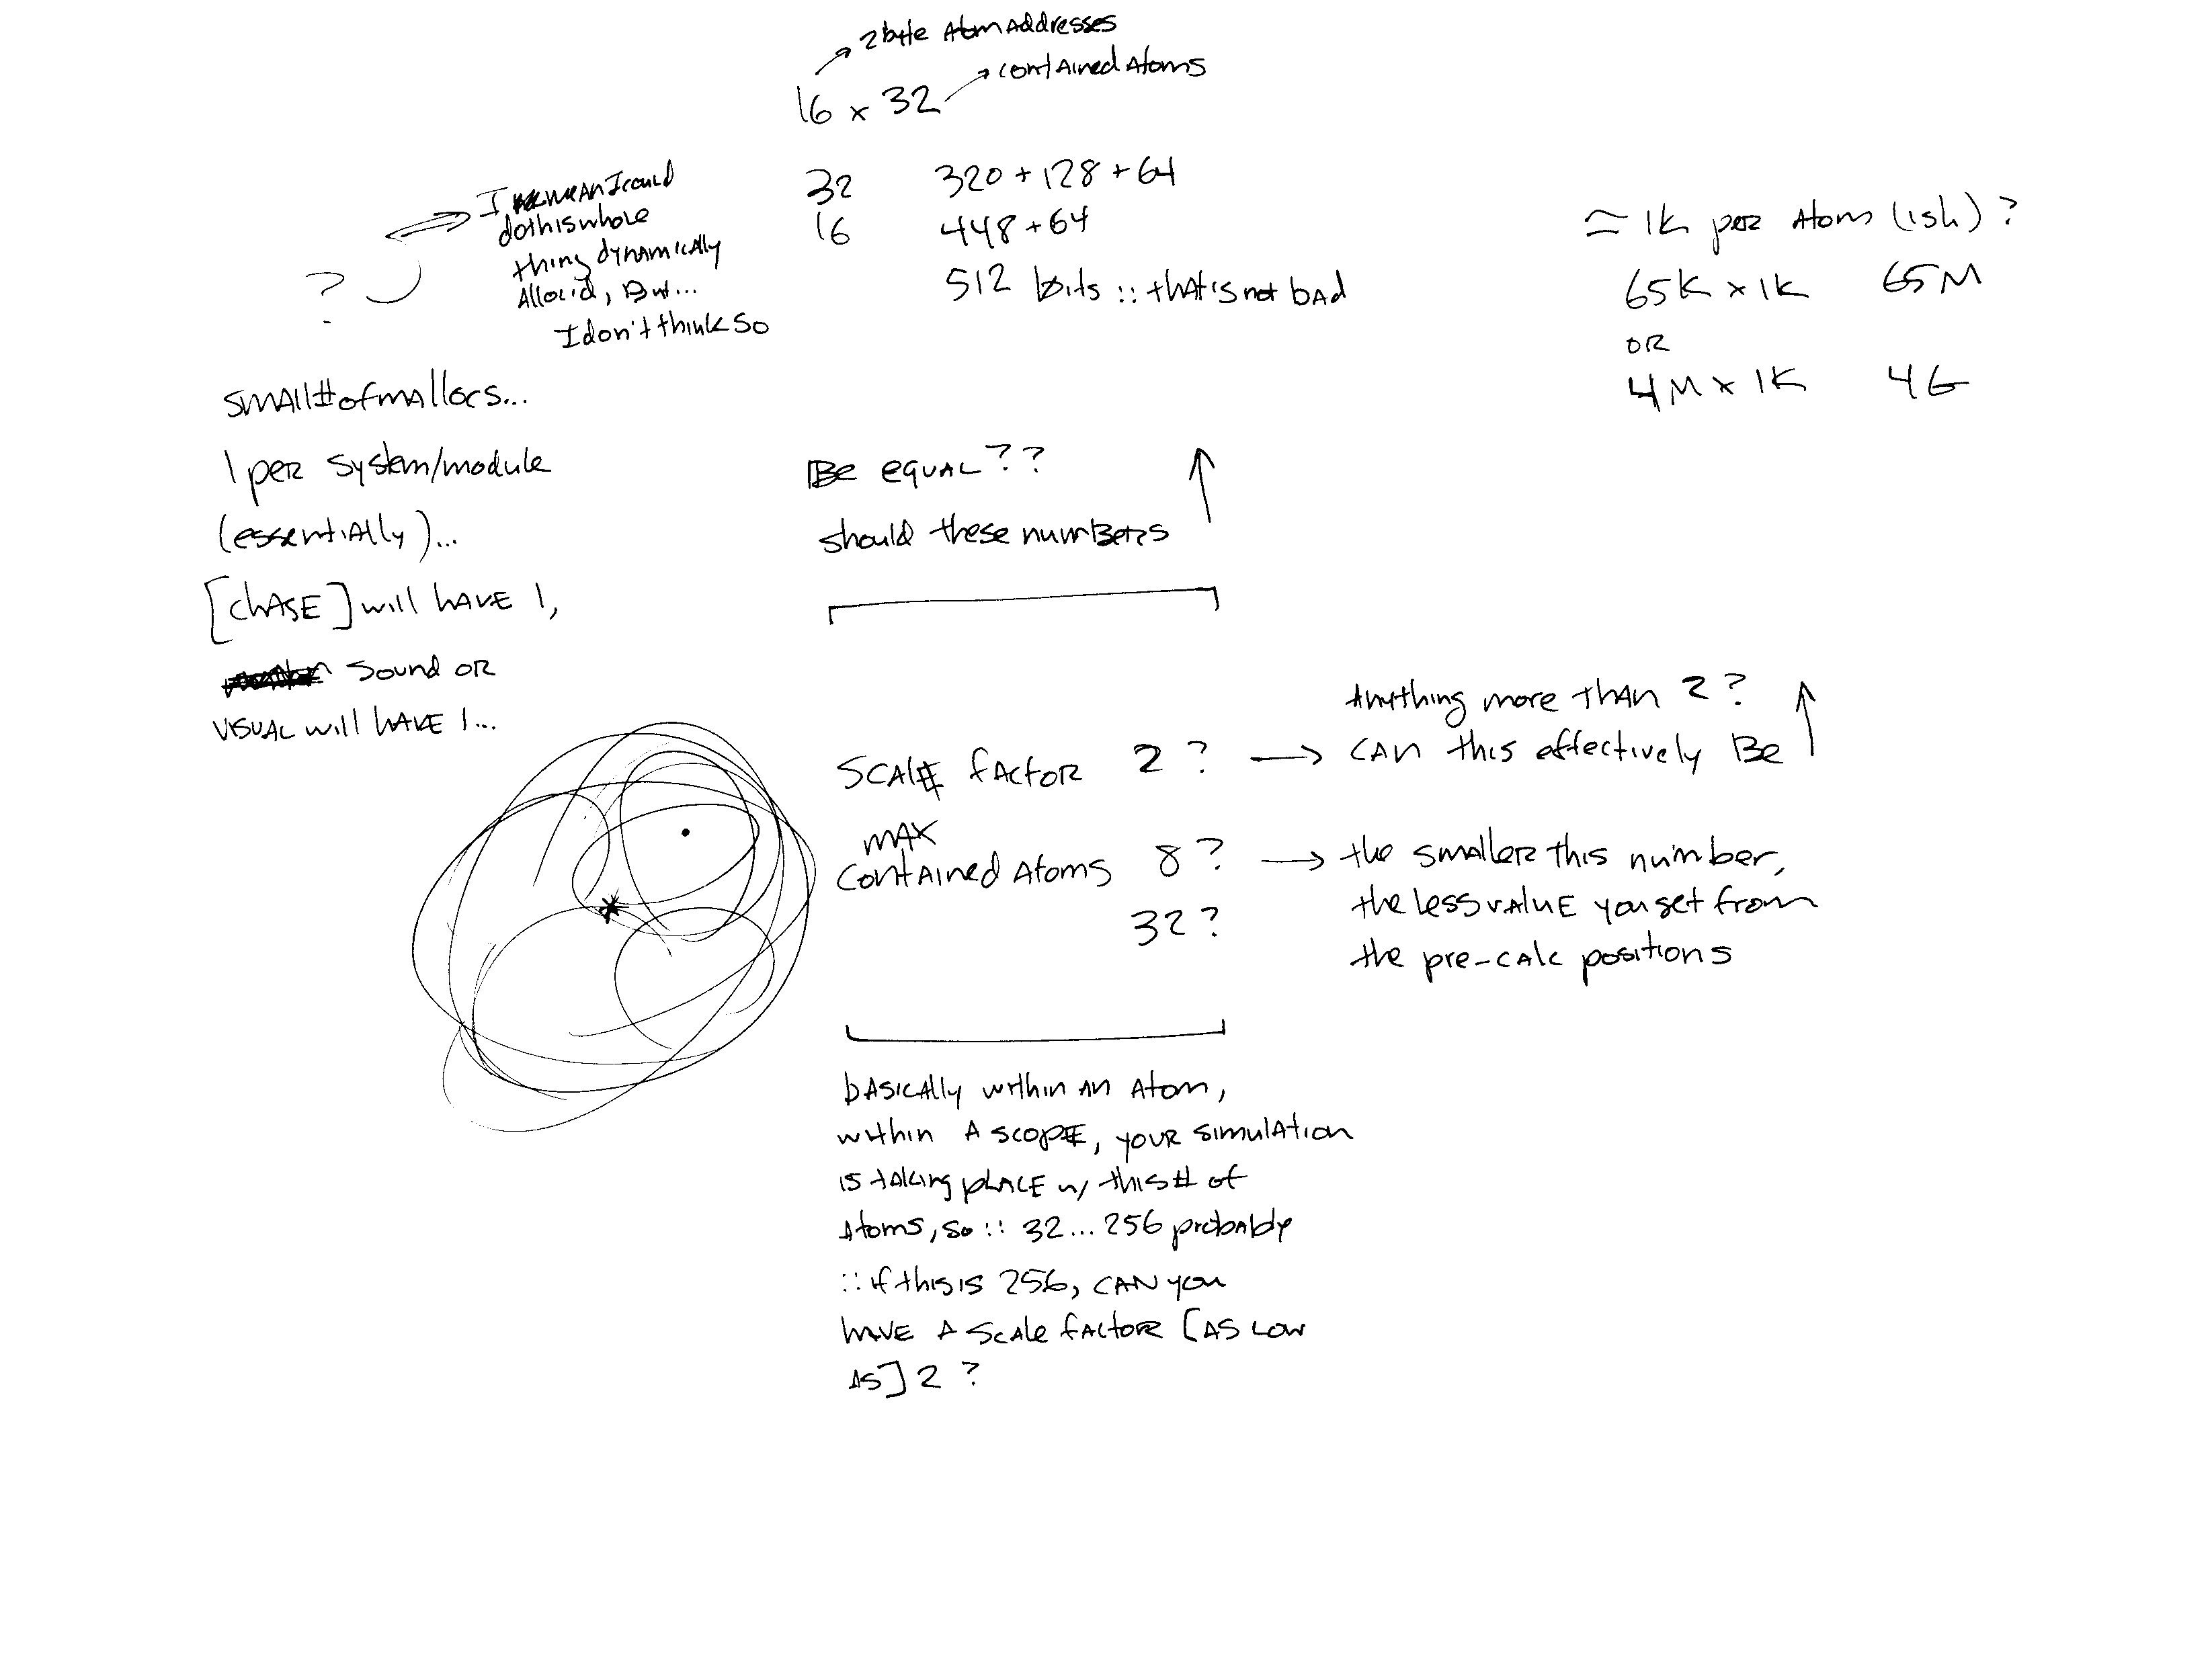 2 byte Atom Addresses
contained Atoms
16 x 32
32 320 + 128 + 64
16 448 + 64
512 bits :: that's not bad
I mean I could
do this whole
thing dynamically
Alloc'd, But...
I don't think so
?
≈ 1K per Atom (ish) ?
65K x 1K 65M
OR
4M x 1K 4G
small # of mallocs...
1 per system/module
(essentially)...
[chASE] will have 1,
sound or
visual will have 1...
Be equal ??
should these numbers
Scale factor 2 ?
Anything more than 2 ?
can this effectively Be
max
contained Atoms 8 ?
32 ?
the smaller this number,
the less value you get from
the pre-calc positions
basically within an Atom,
within a scope, your simulation
is taking place w/ this # of
Atoms, so :: 32...256 probably
:: if this is 256, can you
have a scale factor [as low
as] 2 ?